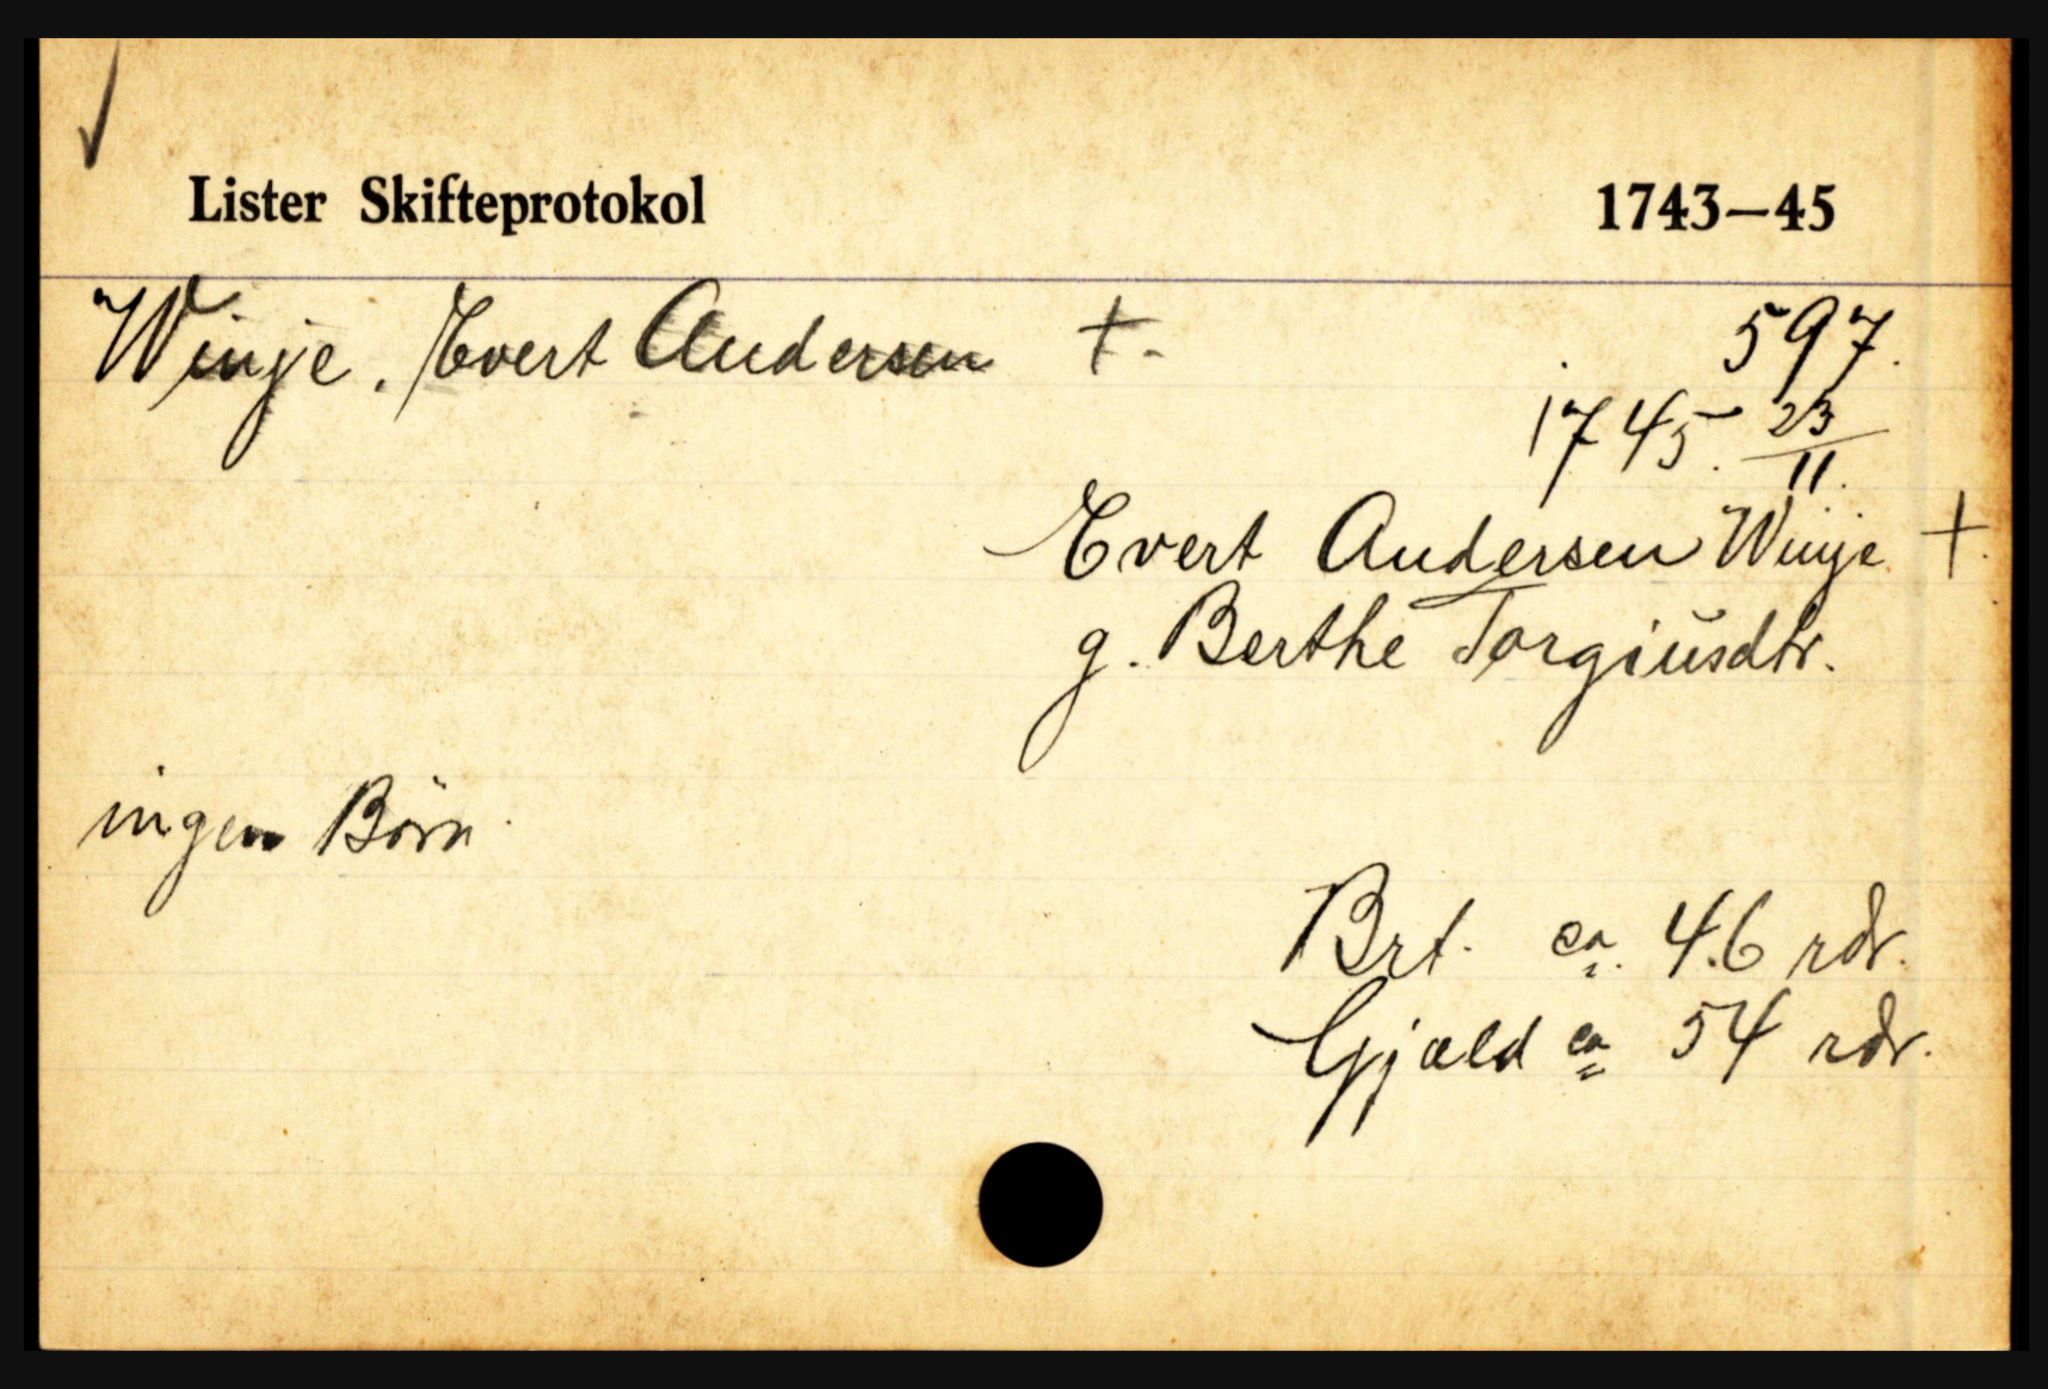 Lister Skifteprotokol 1743–45
Winje, Evert Andersen †. 597.
1745. 23/11.
Evert Andersen Winje †.
g. Berthe Torgiusdtr.
ingen Börn.
Brt. ca. 46 rdr.
Gjæld ca 54 rdr.